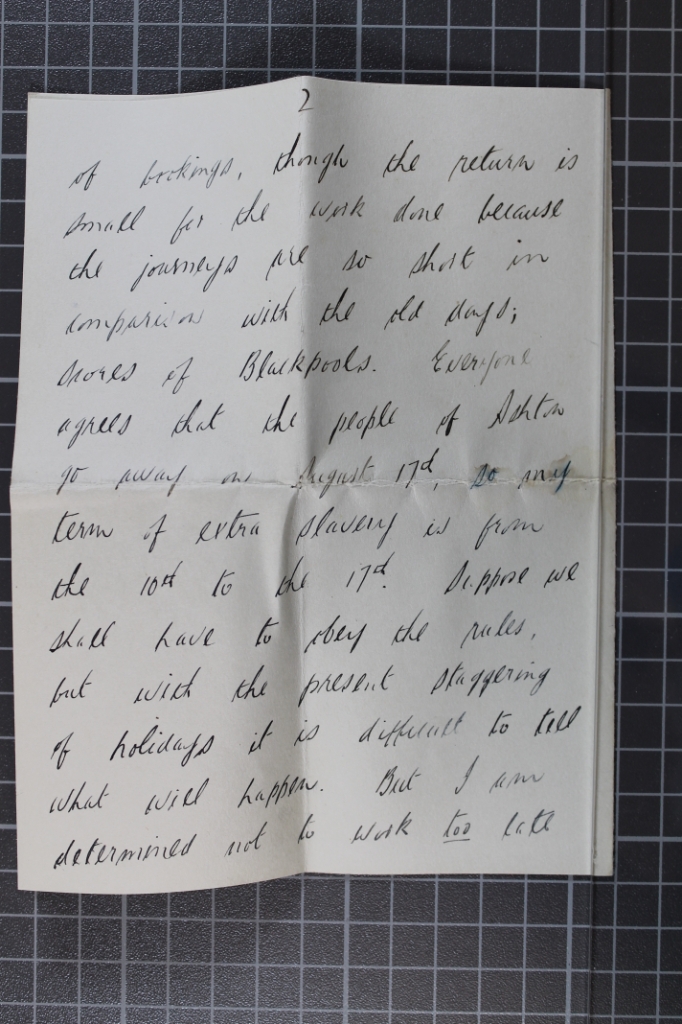 2
of bookings, though the return is
small for the work done because
the journeys are so short in
comparison with the old days;
scores of Blackpools. Everyone
agrees that the people of Ashton
go away on August 17th, so my
term of extra slavery is from
the 10th to the 17th. Suppose we
shall have to obey the rules,
but with the present staggering
of holidays it is difficult to tell
what will happen. But I am
determined not to work too late